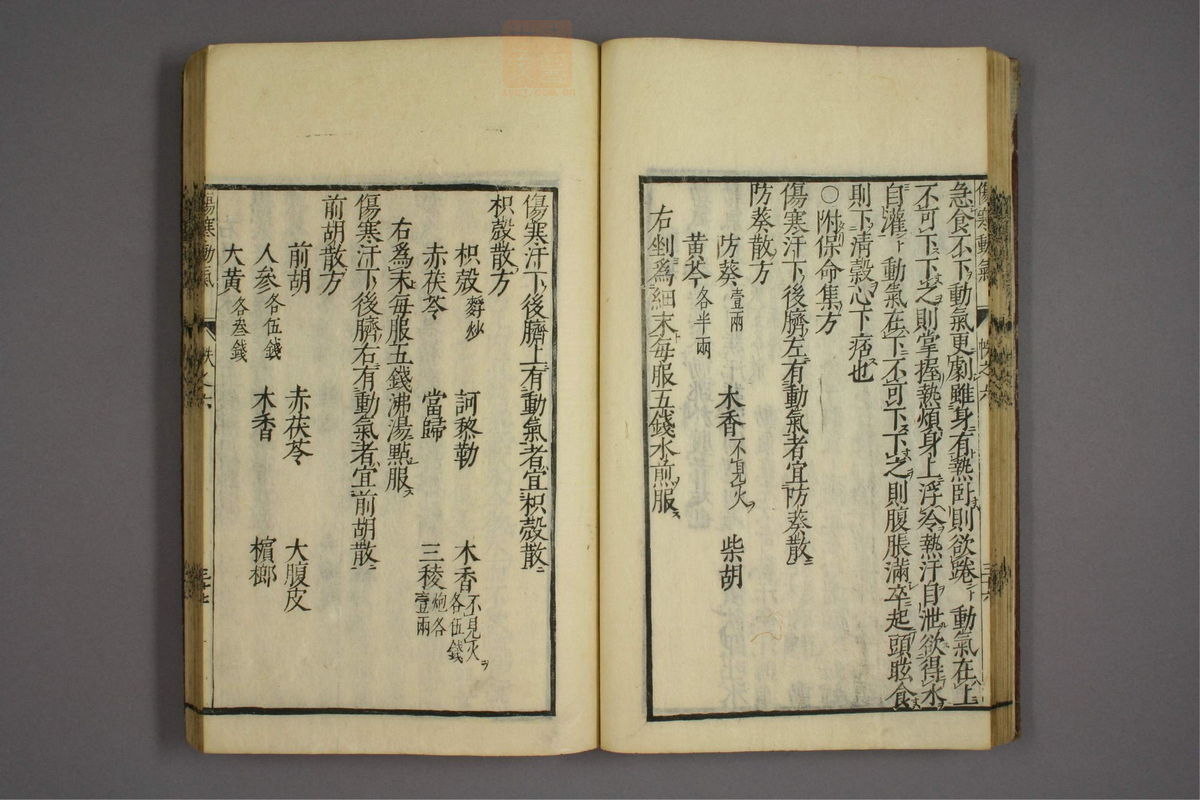 傷寒動氣
急食不下動氣更劇雖身有熱卧則欲踡動氣在上
不可下下之則掌握熱煩身上浮冷熱汗自泄欲得水
自灌動氣在下不可下下之則腹脹滿卒起頭眩食
則下清穀心下痞也
〇附保命集方
傷寒汗下後臍左有動氣者宜防葵散
防葵散方
防葵壹兩 木香不見火 柴胡
黃芩各半兩
右剉為細末每服五錢水煎服
傷寒汗下後臍上有動氣者宜枳殼散
枳殼散方
枳殼麩炒 訶黎勒 木香不見火各伍錢
赤茯苓 當歸 三稜炮各壹兩
右爲末每服五錢沸湯點服
傷寒汗下後臍右有動氣者宜前胡散
前胡散方
前胡 赤茯苓 大腹皮
人參各伍錢 木香 檳榔
大黃各叁錢
傷寒動氣 卷之六 三十七